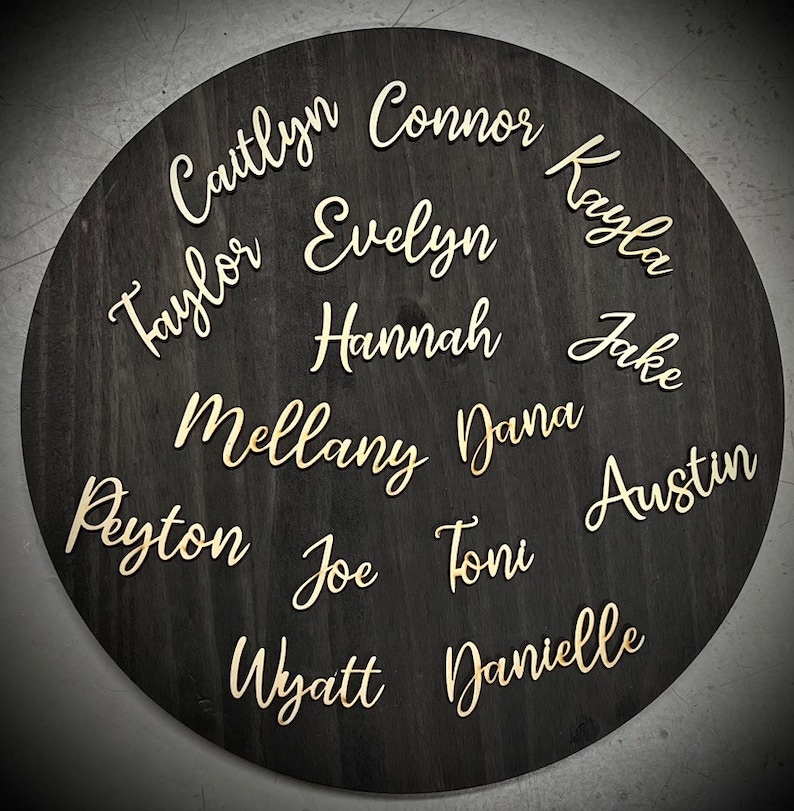 Caitlyn
Connor
Kayla
Taylor
Evelyn
Hannah
Jake
Mellany
Dana
Austin
Peyton
Joe
Toni
Wyatt
Danielle